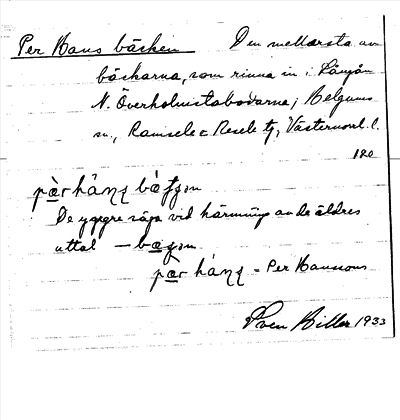 Per Hans bäcken Den mellersta av
bäckarna, som rinna in i Långån
N. Överholmstabodarna, Helgums
sn., Ramsele o Resele tg, Västernorrl. l.
120
De yngre säga vid härmning av de äldres
uttal —
= Per Hanssons
Sven Hiller 1933